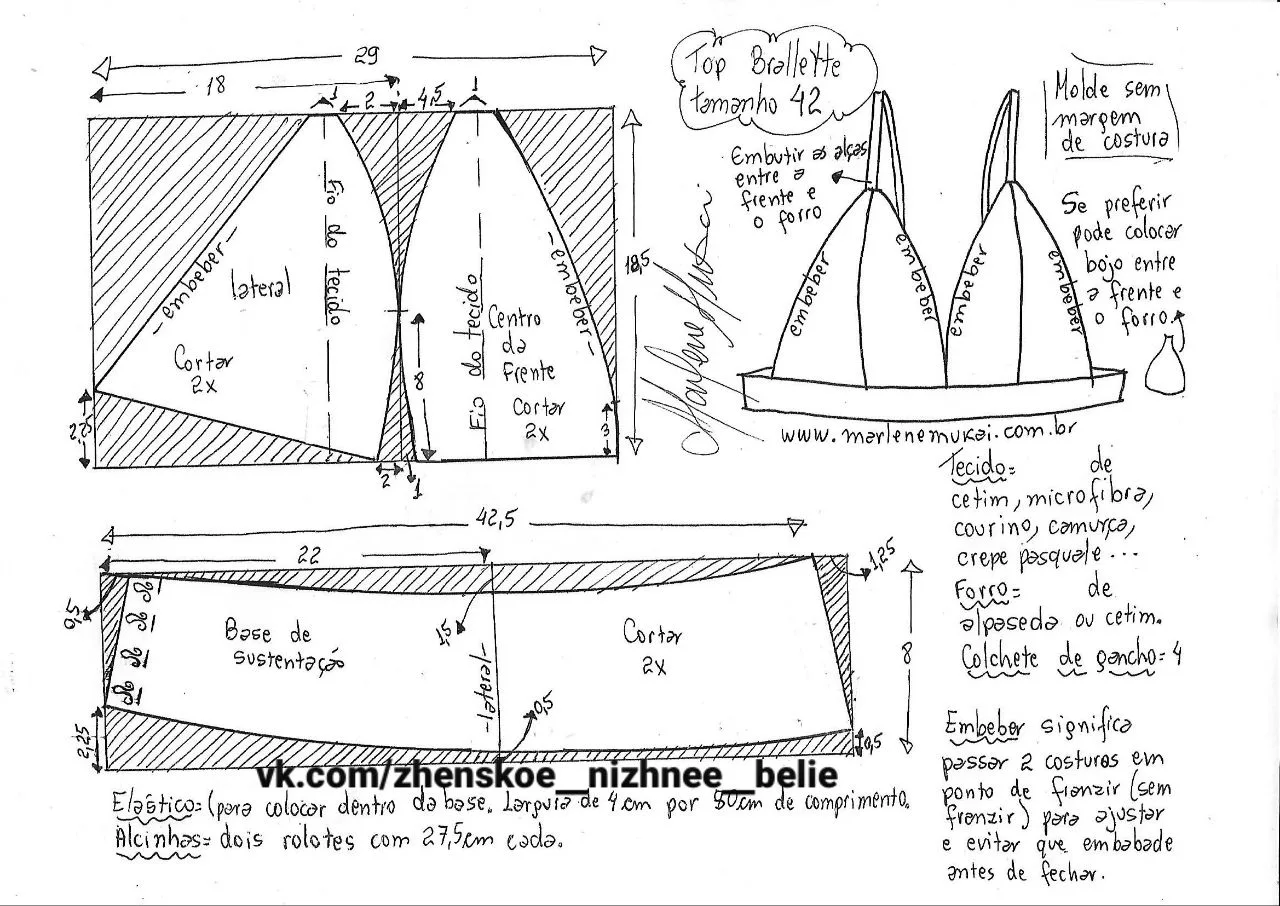 29
18
1
2
4,5
1
Fio do tecido
-embeber-
lateral
Cortar
2x
2,25
2
1
8
Fio do tecido
-embeber-
Centro
da
Frente
Cortar
2x
3
18,5
Top Brallette
tamanho 42
Embutir as alças
entre a
frente e
o forro
embeber
embeber
embeber
embeber
Molde sem
margem
de costura
Se preferir
pode colocar
bojo entre
a frente e
o forro.
Marlene Mukai
www.marlenemukai.com.br
42,5
22
0,5
1,5
1,25
Base de
sustentação
-lateral-
Cortar
2x
0,5
2,25
0,5
8
Tecido= de
cetim, microfibra,
courino, camurça,
crepe pasquale...
Forro= de
alpaseda ou cetim.
Colchete de gancho=4
Embeber significa
passar 2 costuras em
ponto de franzir (sem
frenzir) para ajustar
e evitar que embabade
antes de fechar.
vk.com/zhenskoe__nizhnee__belie
Elástico=(para colocar dentro da base. Largura de 4cm por 80cm de comprimento.
Alcinhas= dois rolotes com 27,5cm cada.